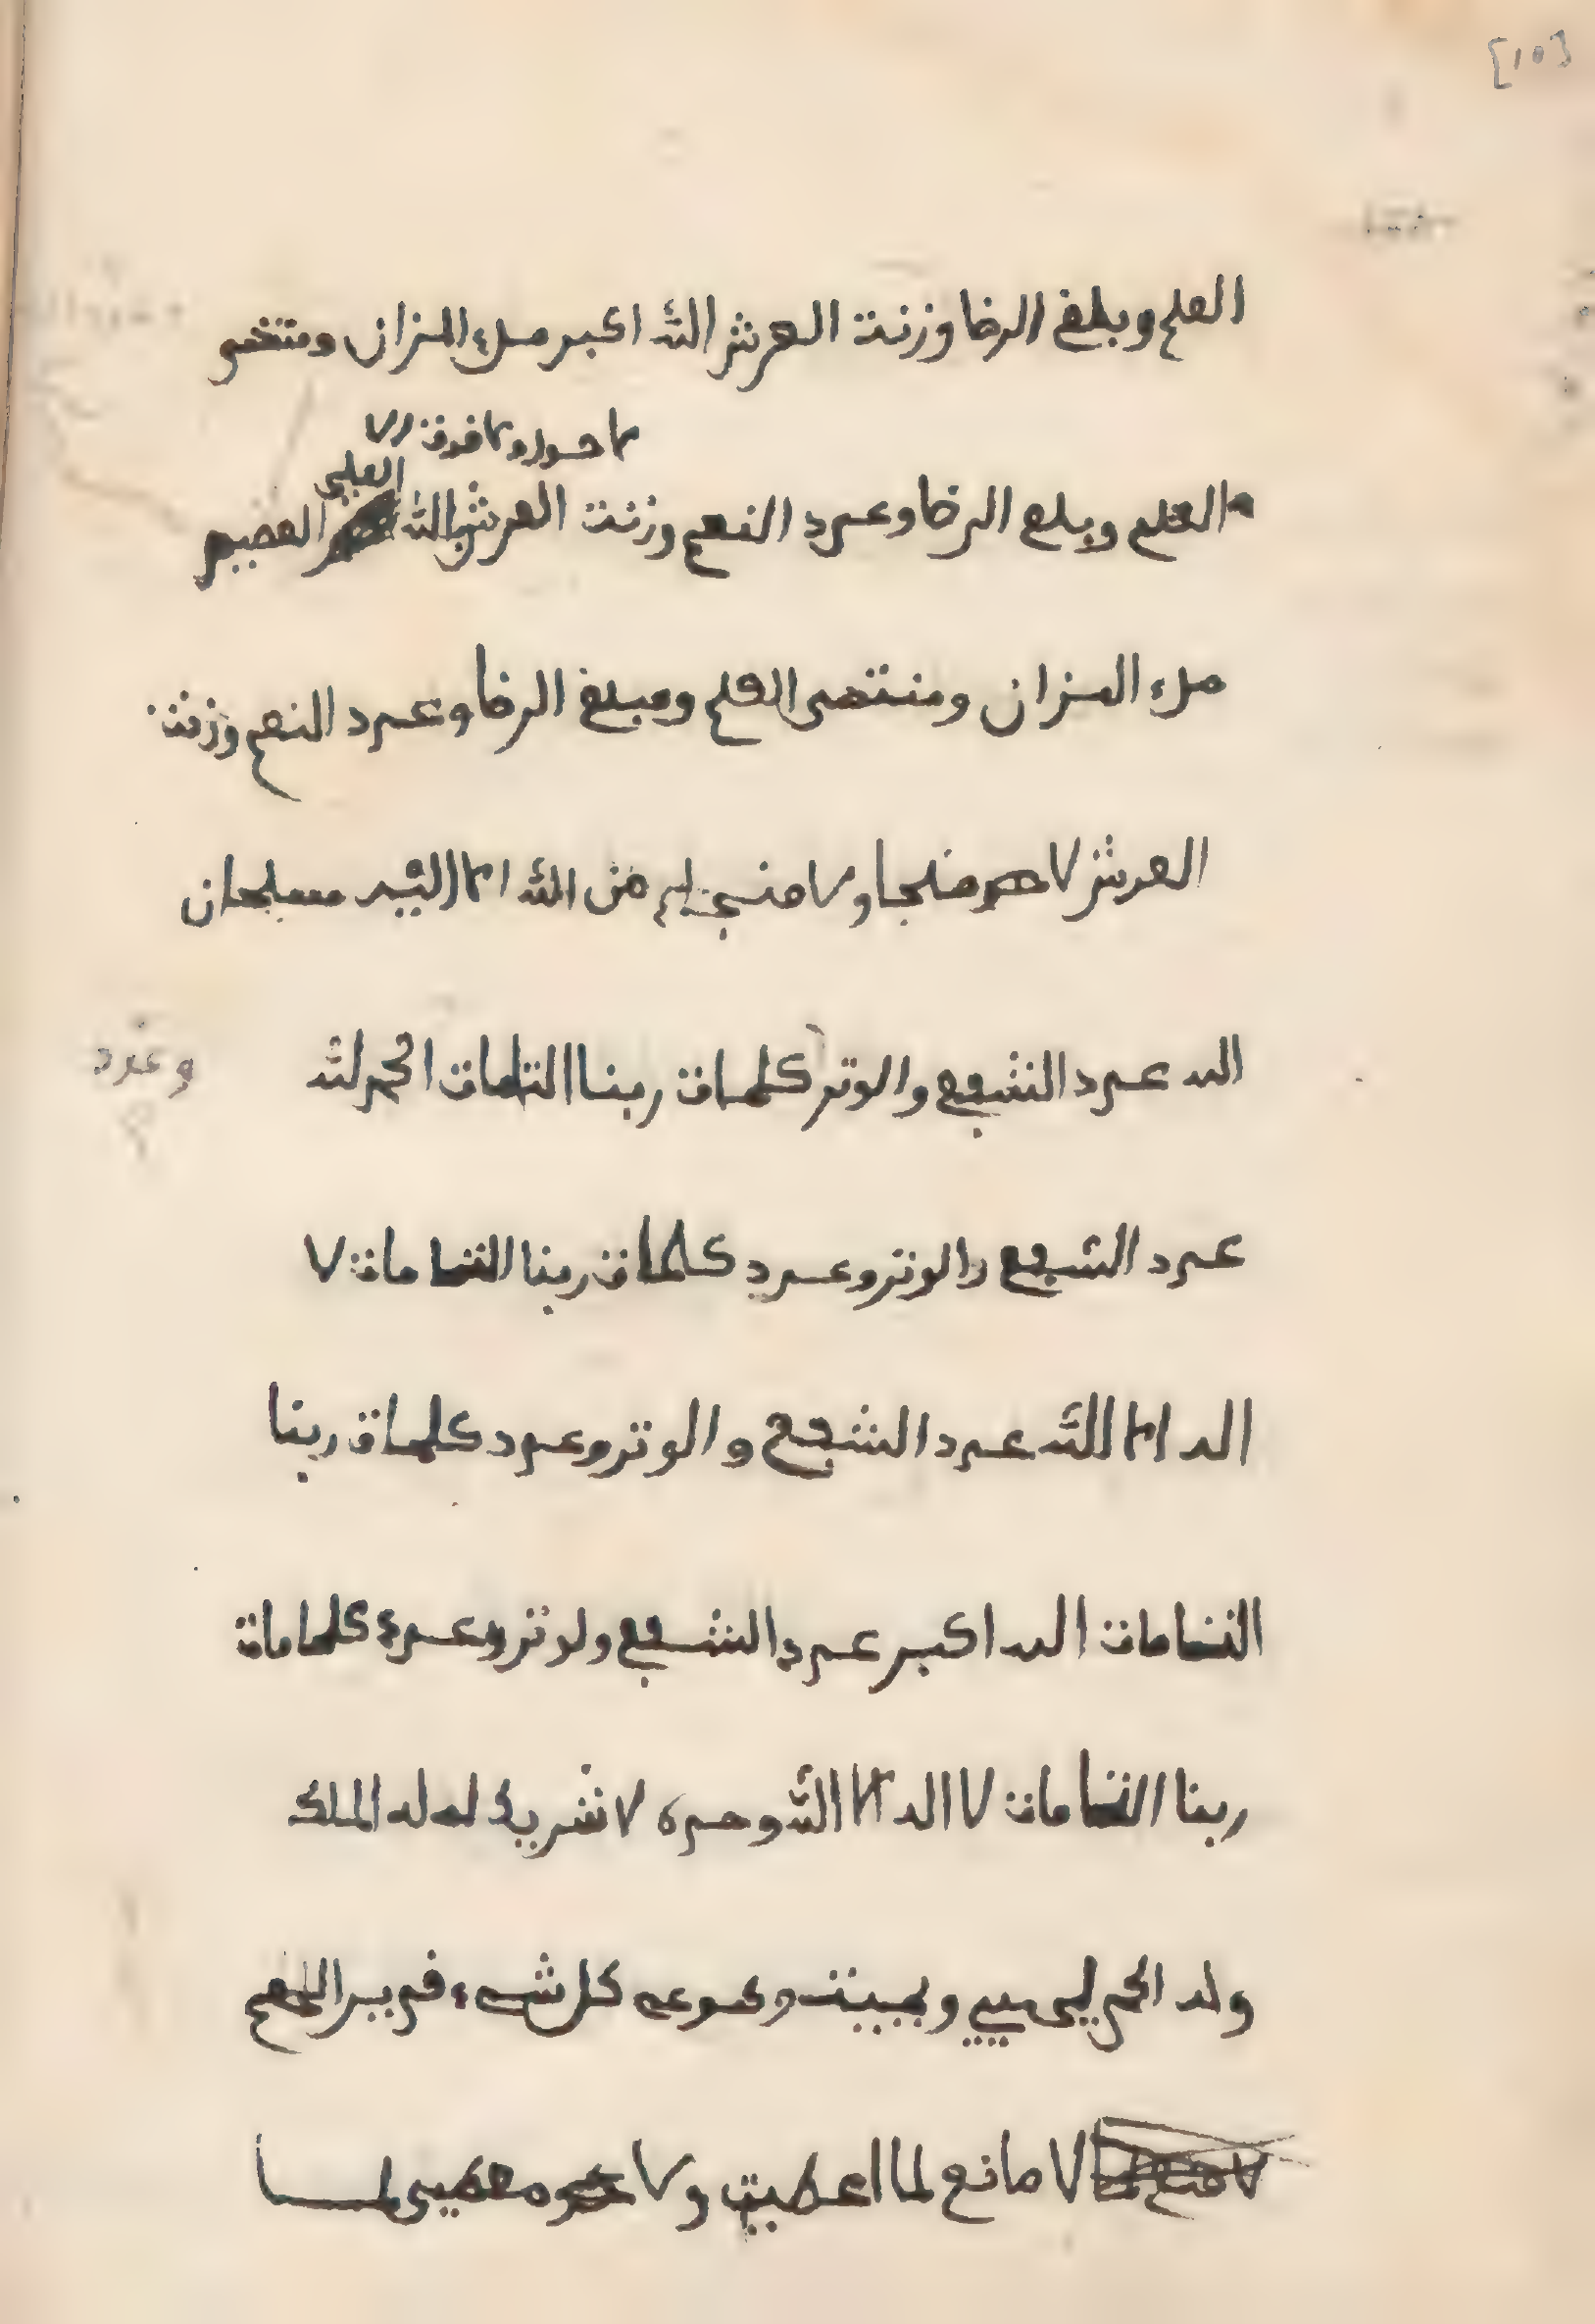 [١٥]
العلم وبلغ الرضا وزنت العرش الله اكبر ملء المزان ومنتخىو
لا حول ولا قوت الا
العلي
العلم وبلع الرضا وعدد النعم وزنت العرش بالله العضيم
ملء المزان ومنتهى العلم ومبلغ الرضا وعدد النعم وزنت
العرش لا ملجا ولا منجا من الله الا اليه سبلحان
الله عدد الشفع والوتر كلمات ربنا التامات الحمد لله
وعدد
؟
عدد الشفع والوتر وعدد كلمات ربنا التامات لا
اله الا الله عدد الشفع والوتر وعدد كلمات ربنا
التامات الله اكبر عدد الشفع ولوتر وعدد كلمامات
ربنا التامات لا اله الا الله وحده لا شريك له له الملك
وله الحمد يحيي ويميت وهو عه كل شيء قدير اللهم
لا مانع لما اعطيت ولا معطيى لما